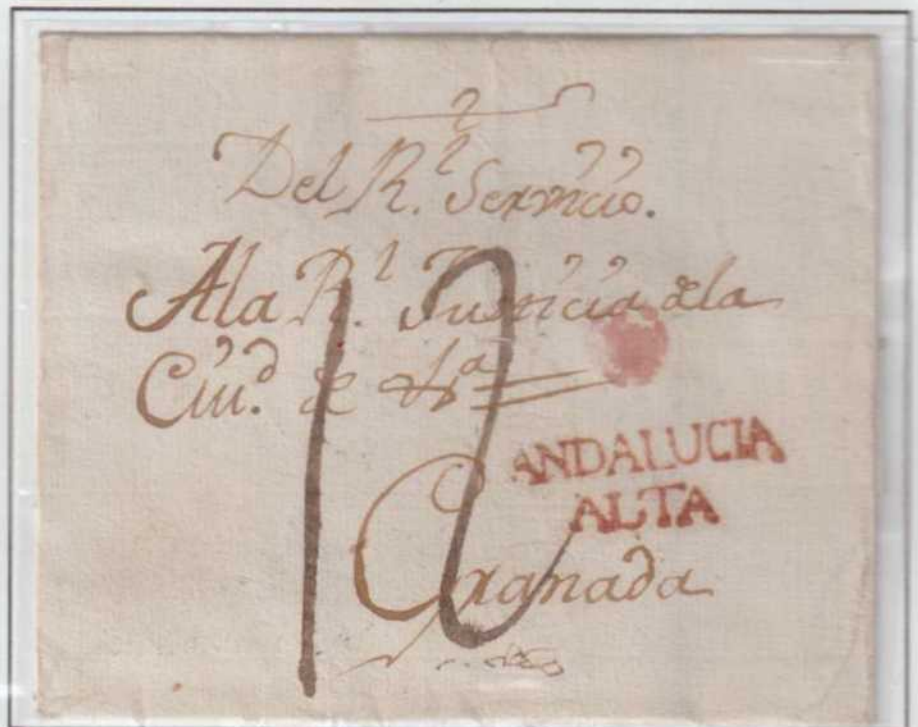 Del R.l Servicio.
A la R.l Justicia de la
Ciu.d de
12
ANDALUCIA
ALTA
Granada